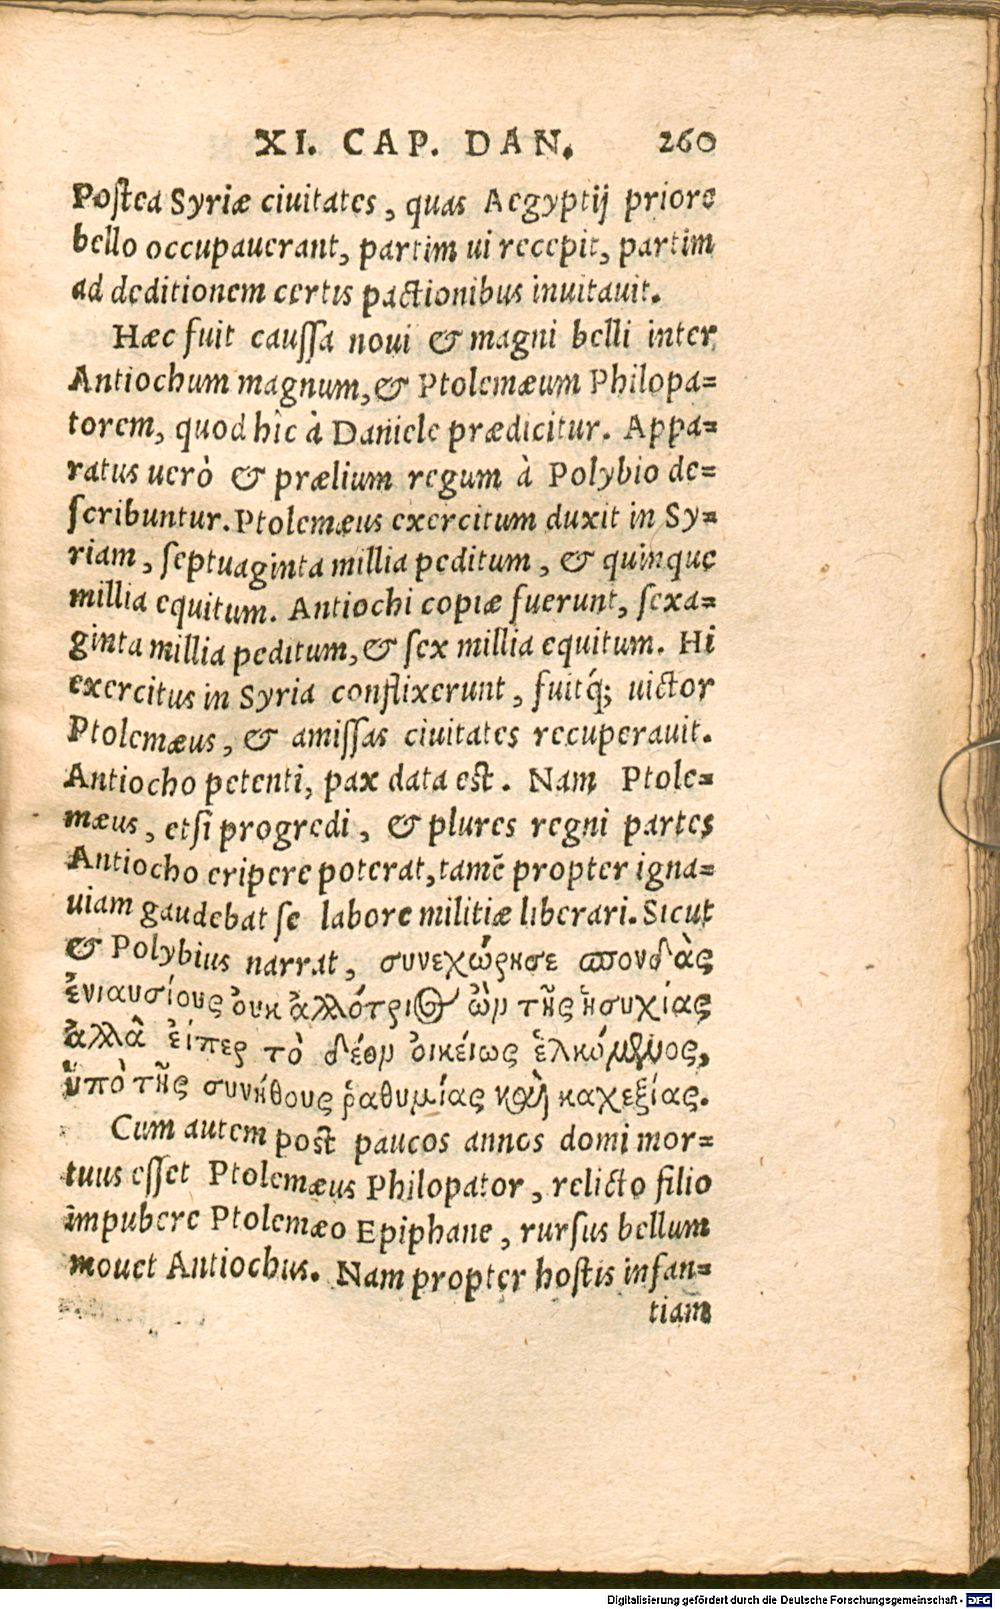 XI. CAP. DAN. 260
Postea Syriæ ciuitates, quas Aegyptij priore
bello occupauerant, partim ui recepit, partim
ad deditionem certis pactionibus inuitauit.
Hæc fuit caussa noui & magni belli inter
Antiochum magnum, & Ptolemæum Philopa=
torem, quod hic à Daniele prædicitur. Appa=
ratus uerò & prælium regum à Polybio de=
scribuntur. Ptolemæus exercitum duxit in Sy=
riam, septuaginta millia peditum, & quinque
millia equitum. Antiochi copiæ fuerunt, sexa=
ginta millia peditum, & sex millia equitum. Hi
exercitus in Syria conflixerunt, fuitq́; uictor
Ptolemæus, & amissas ciuitates recuperauit.
Antiocho petenti, pax data est. Nam Ptole=
mæus, etsi progredi, & plures regni partes
Antiocho eripere poterat, tamē propter igna=
uiam gaudebat se labore militiæ liberari. Sicut
& Polybius narrat, συνεχώρησε σπονδὰς
ἐνιαυσίους ὀυκ ἀλλότριος ὢν τῆς ἡσυχίας
ἀλλὰ ἐίπερ τὸ δέον ὀικείως ἑλκόμενος,
ὑπὸ τῆς συνήθους ῥαθυμίας καὶ καχεξίας.
Cum autem post paucos annos domi mor=
tuus esset Ptolemæus Philopator, relicto filio
impubere Ptolemæo Epiphane, rursus bellum
mouet Antiochus. Nam propter hostis infan=
tiam
Digitalisierung gefördert durch die Deutsche Forschungsgemeinschaft - DFG